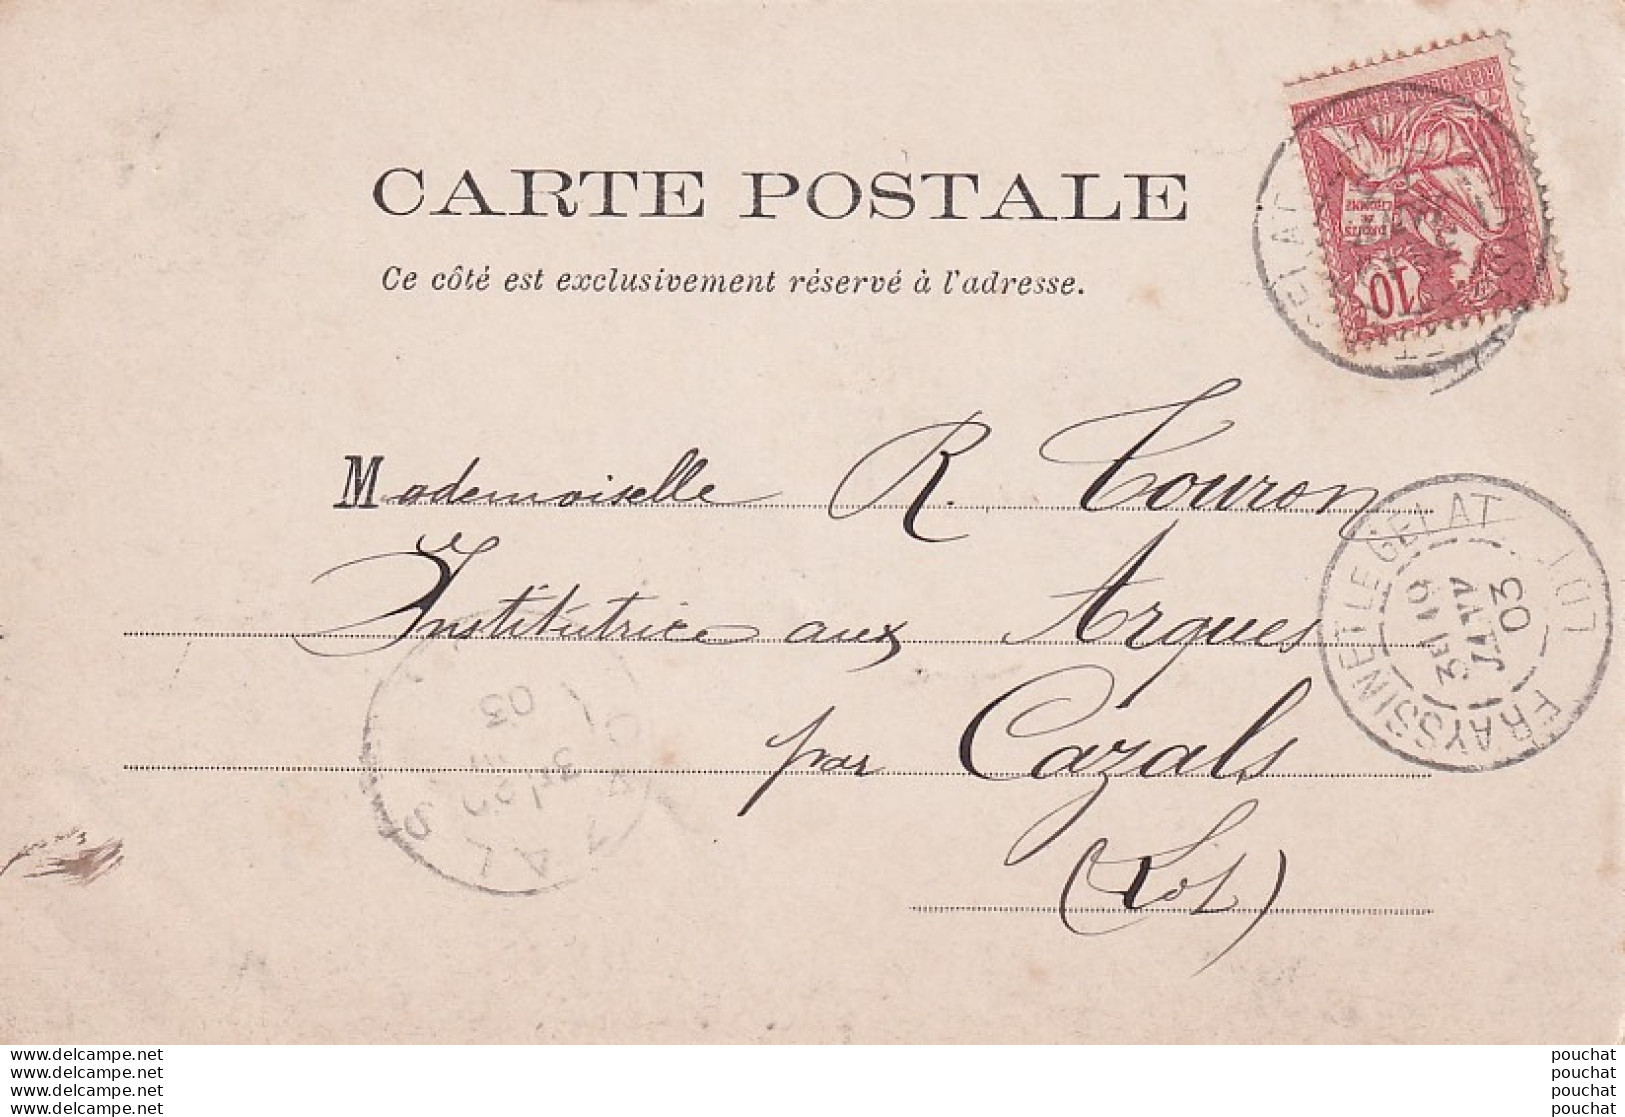 CARTE POSTALE
Ce côté est exclusivement réservé à l'adresse.
RÉPUBLIQUE FRANÇAISE
DROITS
DE
L'HOMME
10
Mademoiselle R. Touron
Institutrice aux Arques
par Cazals
(Lot)
FRAYSSINET LE GELAT LOT
03
CAZALS
03
www.delcampe.net
www.delcampe.net
www.delcampe.net
www.delcampe.net
pouchat
pouchat
pouchat
pouchat